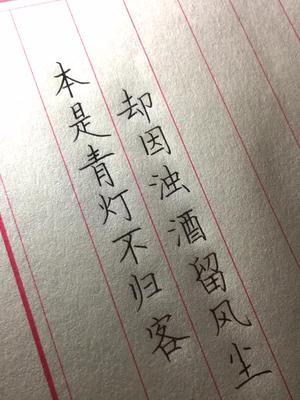 本是青灯不归客
却因浊酒留风尘